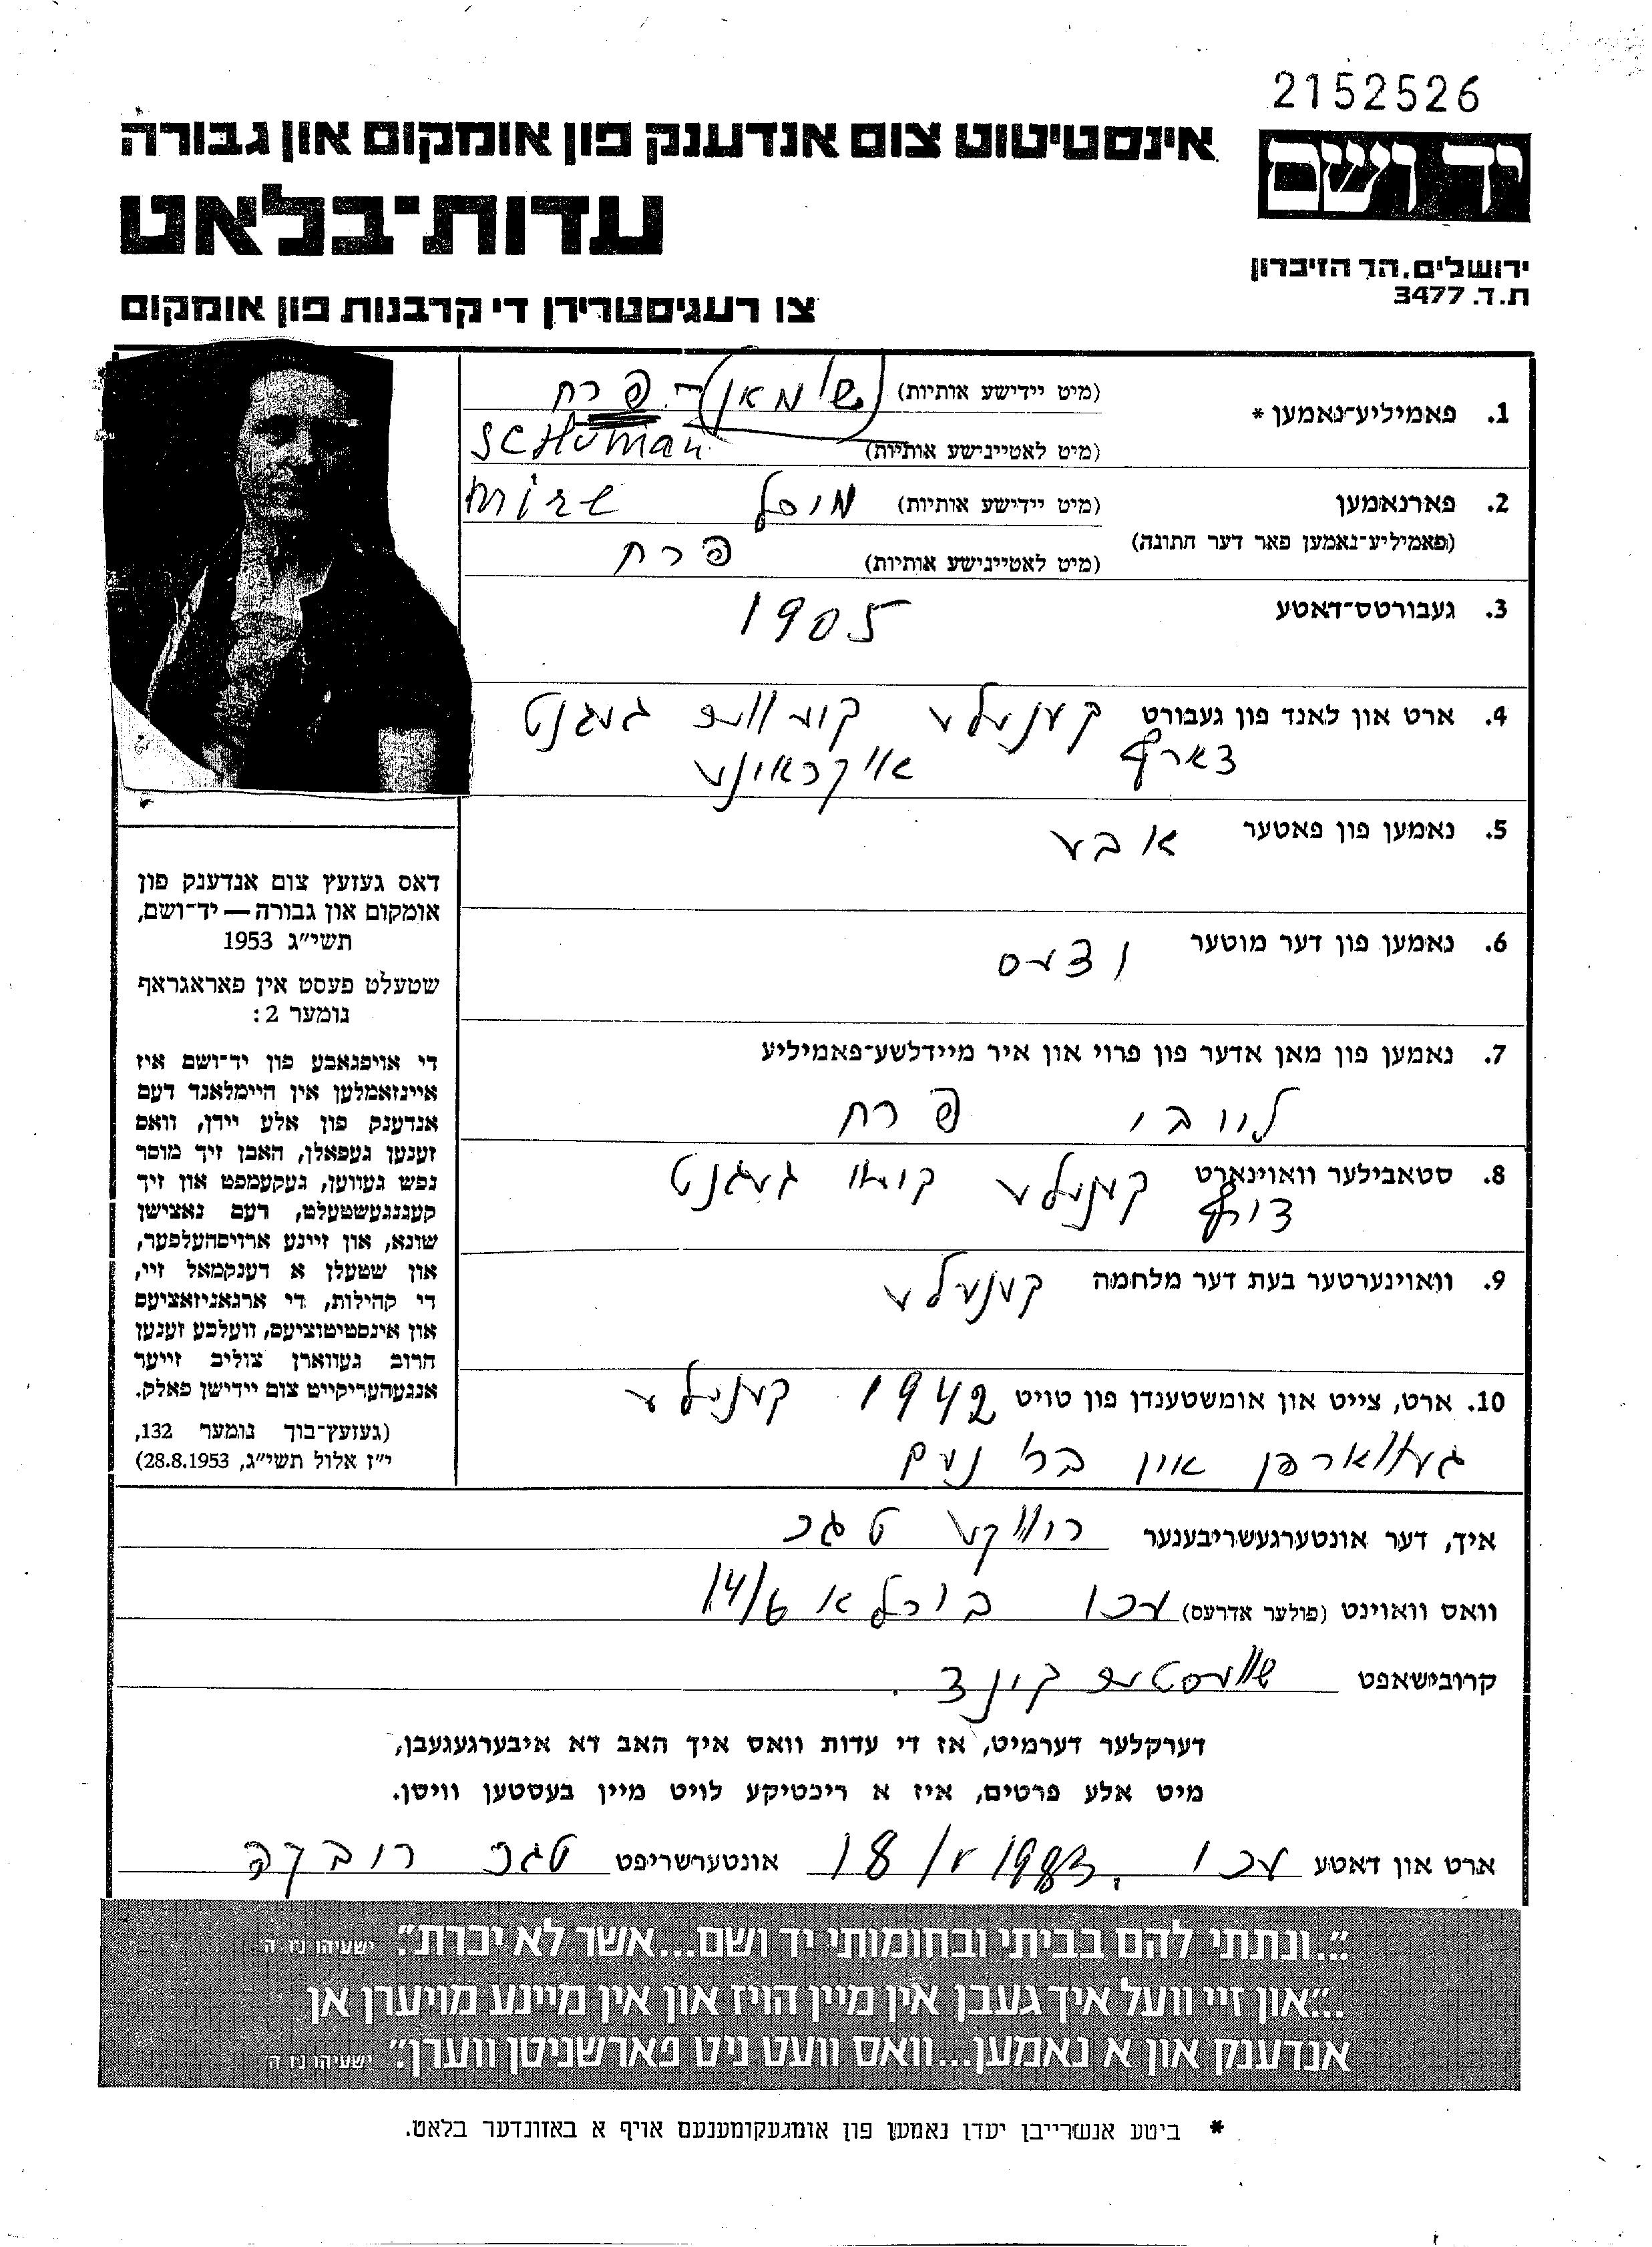 2152526
אינסטיטוט צום אנדענק פון אומקום און גבורה
יד ושם
עדות־בלאט
ירושלים, הר הזיכרון
ת.ד. 3477
צו רעגיסטרירן די קרבנות פון אומקום
1. פאמיליע־נאמען * (מיט יידישע אותיות) שומאן - פרח
(מיט לאטיינישע אותיות) SCHUMAN
2. פארנאמען (מיט יידישע אותיות)
(פאמיליע־נאמען פאר דער חתונה)
(מיט לאטיינישע אותיות) פרח
3. געבורטס־דאטע 1905
4. ארט און לאנד פון געבורט קענעלע קיעווער געגנט
דארף אייקראינע
5. נאמען פון פאטער אבע
6. נאמען פון דער מוטער
7. נאמען פון מאן אדער פון פרוי און איר מיידלשע־פאמיליע
ליובו פרח
8. סטאבילער וואוינארט קענעלע געגנט
דורף
9. וואוינערטער בעת דער מלחמה קענעלע
10. ארט, צייט און אומשטענדן פון טויט 1942 קענעלע
געווארפן אין
דאס געזעץ צום אנדענק פון
אומקום און גבורה — יד־ושם,
תשי״ג 1953
שטעלט פעסט אין פאראגראף
נומער 2:
די אויפגאבע פון יד־ושם איז
איינזאמלען אין היימלאנד דעם
אנדענק פון אלע יידן, וואס
זענען געפאלן, האבן זיך מוסר
נפש געווען, געקעמפט און זיך
קעגנגעשטעלט, דעם נאצישן
שונא, און זיינע ארויסהעלפער,
און שטעלן א דענקמאל זיי,
די קהילות, די ארגאניזאציעס
און אינסטיטוציעס, וועלכע זענען
חרוב געווארן צוליב זייער
אנגעהעריקייט צום יידישן פאלק.
(געזעץ־בוך נומער 132,
י״ז אלול תשי״ג, 28.8.1953)
איך, דער אונטערגעשריבענער
וואס וואוינט (פולער אדרעס) עכו 14/
קרובישאפט שוועסטער קינד.
דערקלער דערמיט, אז די עדות וואס איך האב דא איבערגעגעבן,
מיט אלע פרטים, איז א ריכטיקע לויט מיין בעסטען וויסן.
ארט און דאטע עכו אונטערשריפט רובקה
"...ונתתי להם בביתי ובחומותי יד ושם...אשר לא יכרת". ישעיהו נו ה'
"...און זיי וועל איך געבן אין מיין הויז און אין מיינע מויערן אן
אנדענק און א נאמען...וואס וועט ניט פארשניטן ווערן". ישעיהו נו ה'
* ביטע אנשרייבן יעדן נאמען פון אומגעקומענעם אויף א באזונדער בלאט.